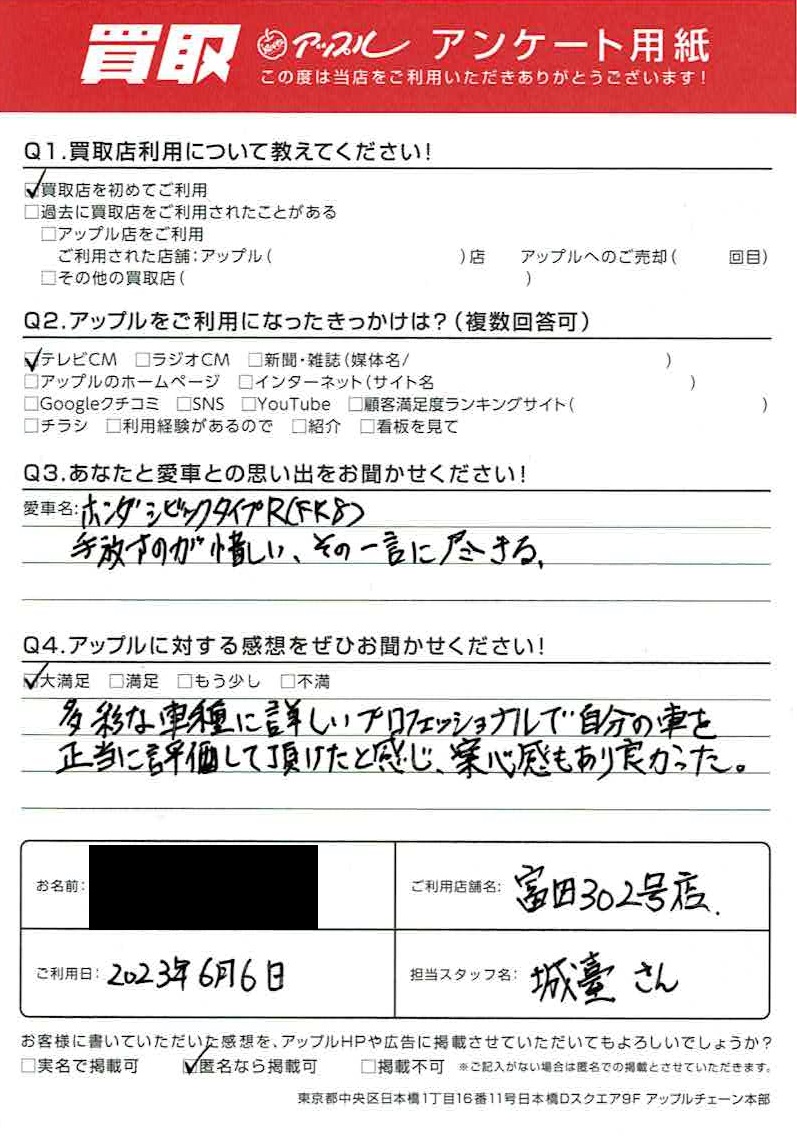 買取 アップル アンケート用紙
この度は当店をご利用いただきありがとうございます!
Q1.買取店利用について教えてください!
☑買取店を初めてご利用
□過去に買取店をご利用されたことがある
□アップル店をご利用
ご利用された店舗:アップル( )店 アップルへのご売却( 回目)
□その他の買取店( )
Q2.アップルをご利用になったきっかけは?(複数回答可)
☑テレビCM □ラジオCM □新聞・雑誌(媒体名/ )
□アップルのホームページ □インターネット(サイト名 )
□Googleクチコミ □SNS □YouTube □顧客満足度ランキングサイト( )
□チラシ □利用経験があるので □紹介 □看板を見て
Q3.あなたと愛車との思い出をお聞かせください!
愛車名:ホンダシビックタイプR(FK8)
手放すのが惜しい、その一言に尽きる。
Q4.アップルに対する感想をぜひお聞かせください!
☑大満足 □満足 □もう少し □不満
多彩な車種に詳しいプロフェッショナルで自分の車を
正当に評価して頂けたと感じ、安心感もあり良かった。
お名前:
ご利用店舗名: 富田302号店.
ご利用日: 2023年6月6日
担当スタッフ名: 城臺さん
お客様に書いていただいた感想を、アップルHPや広告に掲載させていただいてもよろしいでしょうか?
□実名で掲載可 ☑匿名なら掲載可 □掲載不可 ※ご記入がない場合は匿名での掲載とさせていただきます。
東京都中央区日本橋1丁目16番11号日本橋Dスクエア9F アップルチェーン本部